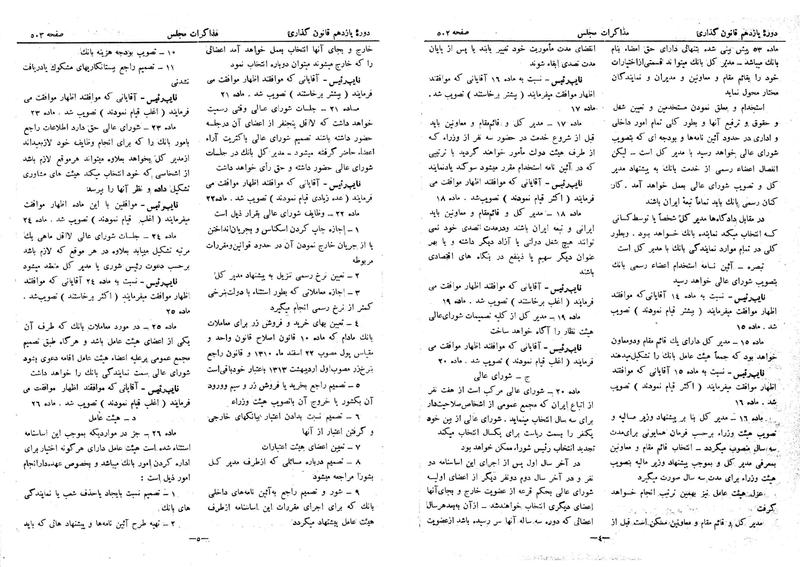 دورهٔ یازدهم قانون گذاری
مذاکرات مجلس
صفحه ۵۰۲
ماده ۵۳ پیش بنی شده بتنهائی دارای حق امضاء بنام
بانك میباشد ـ مدیر کل بانك میتواند قسمتی‌ازاختیارات
خود را بقائم مقام و معاونین و مدیران و نمایندگان
مختار محول نماید
استخدام و معلق نمودن مستخدمین و تعیین شغل
و حقوق و ترفیع آنها و بطور کلی تمام امور داخلی
و اداری در حدود آئین نامه‌ها و بودجه ای که بتصویب
شورای عالی خواهد رسید با مدیر کل است ـ لیکن
انفصال اعضاء رسمی از خدمت بانك به پیشنهاد مدیر
کل و تصویب شورای عالی بعمل خواهد آمد . کار
کنان رسمی بانك باید تماماً تبعهٔ ایران باشند
در مقابل دادگاه‌ها مدیر کل شخصاً یا توسط کسانی
که انتخاب میکند نماینده بانك خواهد بود . وبطور
کلی در تمام موارد نمایندگی بانك با مدیر کل است
تبصره ـ آئین نامه استخدام اعضاء رسمی بانك
بتصویب شورای عالی خواهد رسید
نایب‌رئیس ـ نسبت به ماده ۱۴ آقایانی که موافقند
اظهار موافقت میفرمایند ( اغلب قیام نمودند ) تصویب
شد . ماده ۱۵
ماده ۱۵ ـ مدیر کل دارای یك قائم مقام ودومعاون
خواهد بود که جمعاً هیئت عامل بانك را تشکیل‌میدهند
نایب‌رئیس ـ نسبت به ماده ۱۵ آقایانی که موافقند
اظهار موافقت میفرمایند ( اکثر قیام نمودند ) تصویب
شد . ماده ۱۶
ماده ۱۶ ـ مدیر کل بنا بر پیشنهاد وزیر مالیه و
تصویب هیئت وزراء برحسب فرمان همایونی برای‌مدت
سه سال منصوب میگردد ـ انتخاب قائم مقام و معاونین
بمعرفی مدیر کل و بموجب پیشنهاد وزیر مالیه بتصویب
هیئت وزراء برای مدت سه سال صورت میگیرد
عزل هیئت عامل نیز بهمین ترتیب انجام خواهد
گرفت
مدیر کل و قائم مقام و معاونین ممکن است قبل از
انقضای مدت مأموریت خود تغییر یابند یا پس از پایان
مدت تصدی ابقاء شوند
نایب‌رئیس ـ نسبت به ماده ۱۶ آقایانی که موافقند
اظهار موافقت میفرمایند ( بیشتر برخاستند ) تصویب شد .
ماده ۱۷
ماده ۱۷ ـ مدیر کل و قائم‌مقام و معاونین باید
قبل از شروع خدمت در حضور سه نفر از وزراء که
از طرف هیئت دولت مأمور خواهند گردید با ترتیبی
که در آئین نامه استخدام مقرر میشود سوگند یادنمایند
نایب‌رئیس ـ آقایانی که موافقند اظهار موافقت می
فرمایند ( اکثر قیام نمودند ) تصویب شد . ماده ۱۸
ماده ۱۸ ـ مدیر کل و قائم‌مقام و معاونین باید
ایرانی و تبعه ایران باشند ودرمدت تصدی خود نمی
توانند هیچ شغل دولتی یا آزاد دیگر داشته و یا بهر
عنوان دیگر سهیم یا ذینفع در بنگاه های اقتصادی
باشند
نایب‌رئیس ـ آقایانی که موافقند اظهار موافقت می
فرمایند ( اغلب برخاستند ) تصویب شد . ماده ۱۹
ماده ۱۹ ـ مدیر کل از کلیه تصمیمات شورای‌عالی
هیئت نظار را آگاه خواهد ساخت
نایب‌رئیس ـ آقایانی که موافقند اظهار موافقت می
فرمایند ( اکثر قیام نمودند ) تصویب شد . ماده ۲۰
ج ـ شورای عالی
ماده ۲۰ ـ شورای عالی مرکب است از هفت نفر
از اتباع ایران که مجمع عمومی از اشخاص‌صلاحیت‌دار
برای سه سال انتخاب مینماید . شورای عالی از بین خود
یکنفر را بسمت ریاست برای یکسال انتخاب میکند
تجدید انتخاب رئیس شوراء ممکن خواهد بود
در آخر سال اول پس از اجرای این اساسنامه دو
نفر و در آخر سال دوم دونفر دیگر از اعضای اولیه
شورای عالی بحکم قرعه از عضویت خارج و بجای‌آنها
اعضای دیگری انتخاب خواهندشد ـ از آن ببعد هرسال
اعضائی که دوره سه ساله آنها سر رسیده باشد ازعضویت
ـ۴ـ
دورهٔ یازدهم قانون گذاری
مذاکرات مجلس
صفحه ۵۰۳
خارج و بجای آنها انتخاب بعمل خواهد آمد اعضائی
را که خارج میشوند میتوان دوباره انتخاب نمود
نایب‌رئیس ـ آقایانی که موافقند اظهار موافقت می
فرمایند ( بیشتر برخاستند ) تصویب شد . ماده ۲۱
ماده ۲۱ ـ جلسات شورای عالی وقتی رسمیت
خواهد داشت که لااقل پنجنفر از اعضای آن درجلسه
حضور داشته باشند تصمیم شورای عالی باکثریت آراء
اعضاء حاضر گرفته میشود ـ مدیر کل بانك در جلسات
شورای عالی حضور داشته و حق رأی خواهد داشت
نایب‌رئیس ـ آقایانی که موافقند اظهار موافقت می
فرمایند ( عده زیادی قیام نمودند ) تصویب شد . ماده۲۲
ماده ۲۲ ـ وظایف شورای عالی بقرار ذیل است
۱ ـ اجازه چاپ کردن اسکناس و بجریان‌انداختن
یا از جریان خارج نمودن آن در حدود قوانین‌ومقررات
مربوطه
۲ ـ تعیین نرخ رسمی تنزیل به پیشنهاد مدیر کل
۳ ـ اجازه معاملاتی که بطور استثناء با دولت‌بنرخی
کمتر از نرخ رسمی انجام میگیرد
۴ ـ تعیین بهای خرید و فروش زر برای معاملات
بانك مادام که ماده ۱۰ قانون اصلاح قانون واحد و
مقیاس پول مصوب ۲۲ اسفند ماه ۱۳۱۰ و قانون راجع
بنرخ‌زر مصوب‌اول اردیبهشت ۱۳۱۳ باعتبار خودباقی‌است
۵ ـ تصمیم راجع بخرید یا فروش زر و سیم وورود
آن بکشور یا خروج آن باتصویب هیئت وزراء
۶ ـ تصمیم نسبت بدادن اعتبار ببانکهای خارجی
و گرفتن اعتبار از آنها
۷ ـ تعیین اعضای هیئت اعتبارات
۸ ـ تصمیم درباره مسائلی که ازطرف مدیر کل
بشورا مراجعه میشود
۹ ـ شور و تصمیم راجع به‌آئین نامه‌های داخلی
بانك که برای اجرای مقررات این اساسنامه ازطرف
هیئت عامل پیشنهاد میگردد
۱۰ ـ تصویب بودجه هزینه بانك
۱۱ ـ تصمیم راجع ببستانکاریهای مشکوك یادریافت
نشدنی
نایب‌رئیس ـ آقایانی که موافقند اظهار موافقت می
فرمایند ( اغلب قیام نمودند ) تصویب شد . ماده ۲۳
ماده ۲۳ ـ شورای عالی حق دارد اطلاعات راجع
بامور بانك را که برای انجام وظایف خود لازم‌بداند
ازمدیر کل بخواهد بعلاوه میتواند هرموقع لازم باشد
از اشخاصی که خود انتخاب میکند هیئت های مشاوری
تشکیل داده و نظر آنها را بپرسد
نایب‌رئیس ـ موافقین با این ماده اظهار موافقت
میفرمایند ( اغلب قیام نمودند ) تصویب شد . ماده ۲۴
ماده ۲۴ ـ جلسات شورای عالی لااقل ماهی یك
مرتبه تشکیل میابد بعلاوه در هر موقع که لازم باشد
برحسب دعوت رئیس شوری یا مدیر کل منعقد میشود
نایب‌رئیس ـ نسبت به ماده ۲۴ آقایانی که موافقند
اظهار موافقت میفرمایند ( اکثر برخاستند ) تصویب‌شد .
ماده ۲۵
ماده ۲۵ ـ در مورد معاملات بانك که طرف آن
یکی از اعضای هیئت عامل باشد و هرگاه طبق تصمیم
مجمع عمومی برعلیه اعضاء هیئت عامل اقامه دعوی بشود
شورای عالی سمت نمایندگی بانك را خواهد داشت
نایب‌رئیس ـ آقایانی که موافقند اظهار موافقت می
فرمایند ( اغلب قیام نمودند ) تصویب شد . ماده ۲۶
د ـ هیئت عامل
ماده ۲۶ ـ جز در مواردیکه بموجب این اساسنامه
استثناء شده است هیئت عامل دارای هرگونه اختیار برای
اداره کردن امور بانك میباشد و بخصوص عهده‌دارانجام
امور ذیل است :
۱ ـ تصمیم نسبت بایجاد یاحذف شعب یا نمایندگی
های بانك .
۲ ـ تهیه طرح آئین نامه ها و پیشنهاد هائی که باید
ـ۵ـ